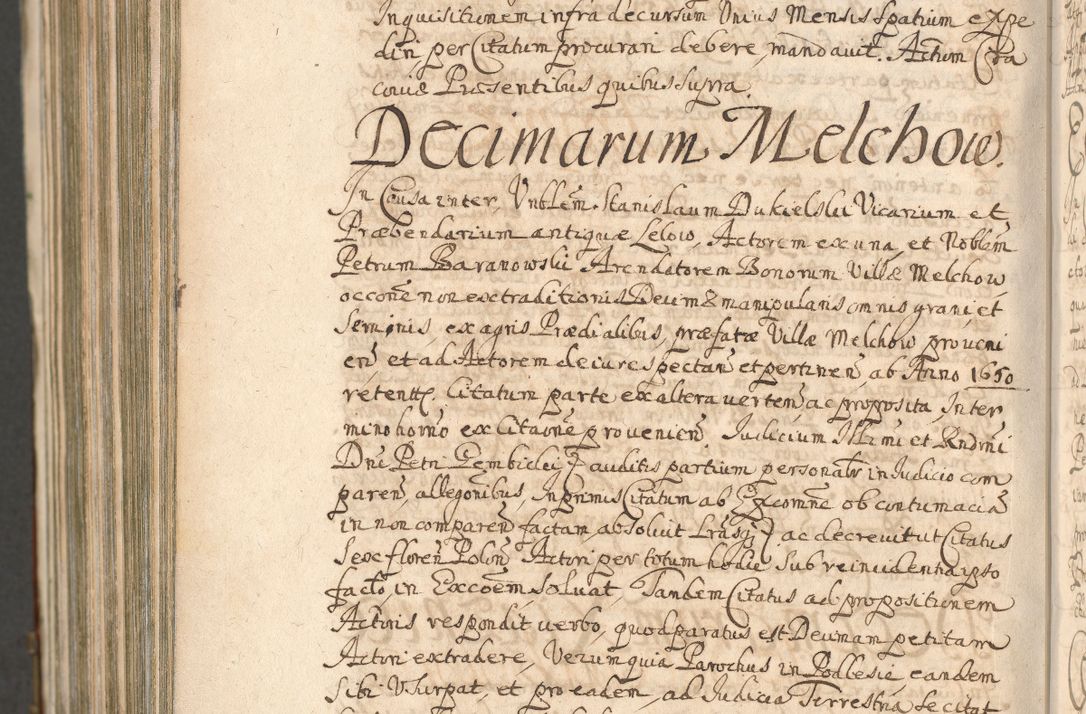 Inquisitionem infra decursum Unius Mensis Spatium expe
diri, per Citatum procurari debere, mandavit. Actum Cra
coviæ Præsentibus quibus supra.
Decimarum Melchow.
In Causa inter, Vnblem. Stanislaum Dukielski Vicarium et
Præbendarium antiquæ Lelow, Actorem ex una, et Noblem
Petrum Baranowski Arendatorem Bonorum Villæ Melchow
occone non extraditionis Decimæ manipularis omnis grani, et
Seminis, ex agris Prædialibus, præfatæ Villæ Melchow proveni
en et ad Actorem de iure spectan et pertinen, ab Anno 1650
retentæ, Citatum parte ex altera verten, ac proposita, Inter
mino horno ex Citatione provenien. Iudicium Illrmi et Rndmi
Dni Petri Gembicki, auditis partium personalr in Iudicio com
paren, allegonibus, In primis Citatum ab Excomne ob contumacia
in non comparen factam, absolvit ac decrevit ut Citatus
Sex floren Polon Actori per totum hodie Sub reincidentia ipso
facto in Excoem solvat, Tandem Citatus ad propositionem
Actoris respondit verbo, quod paratus est Decimam petitam
Actori extradere, Verum quia Parochus in Podlesie eandem
sibi Usurpat, et pro eadem, ad Iudicia Terrestria se citat